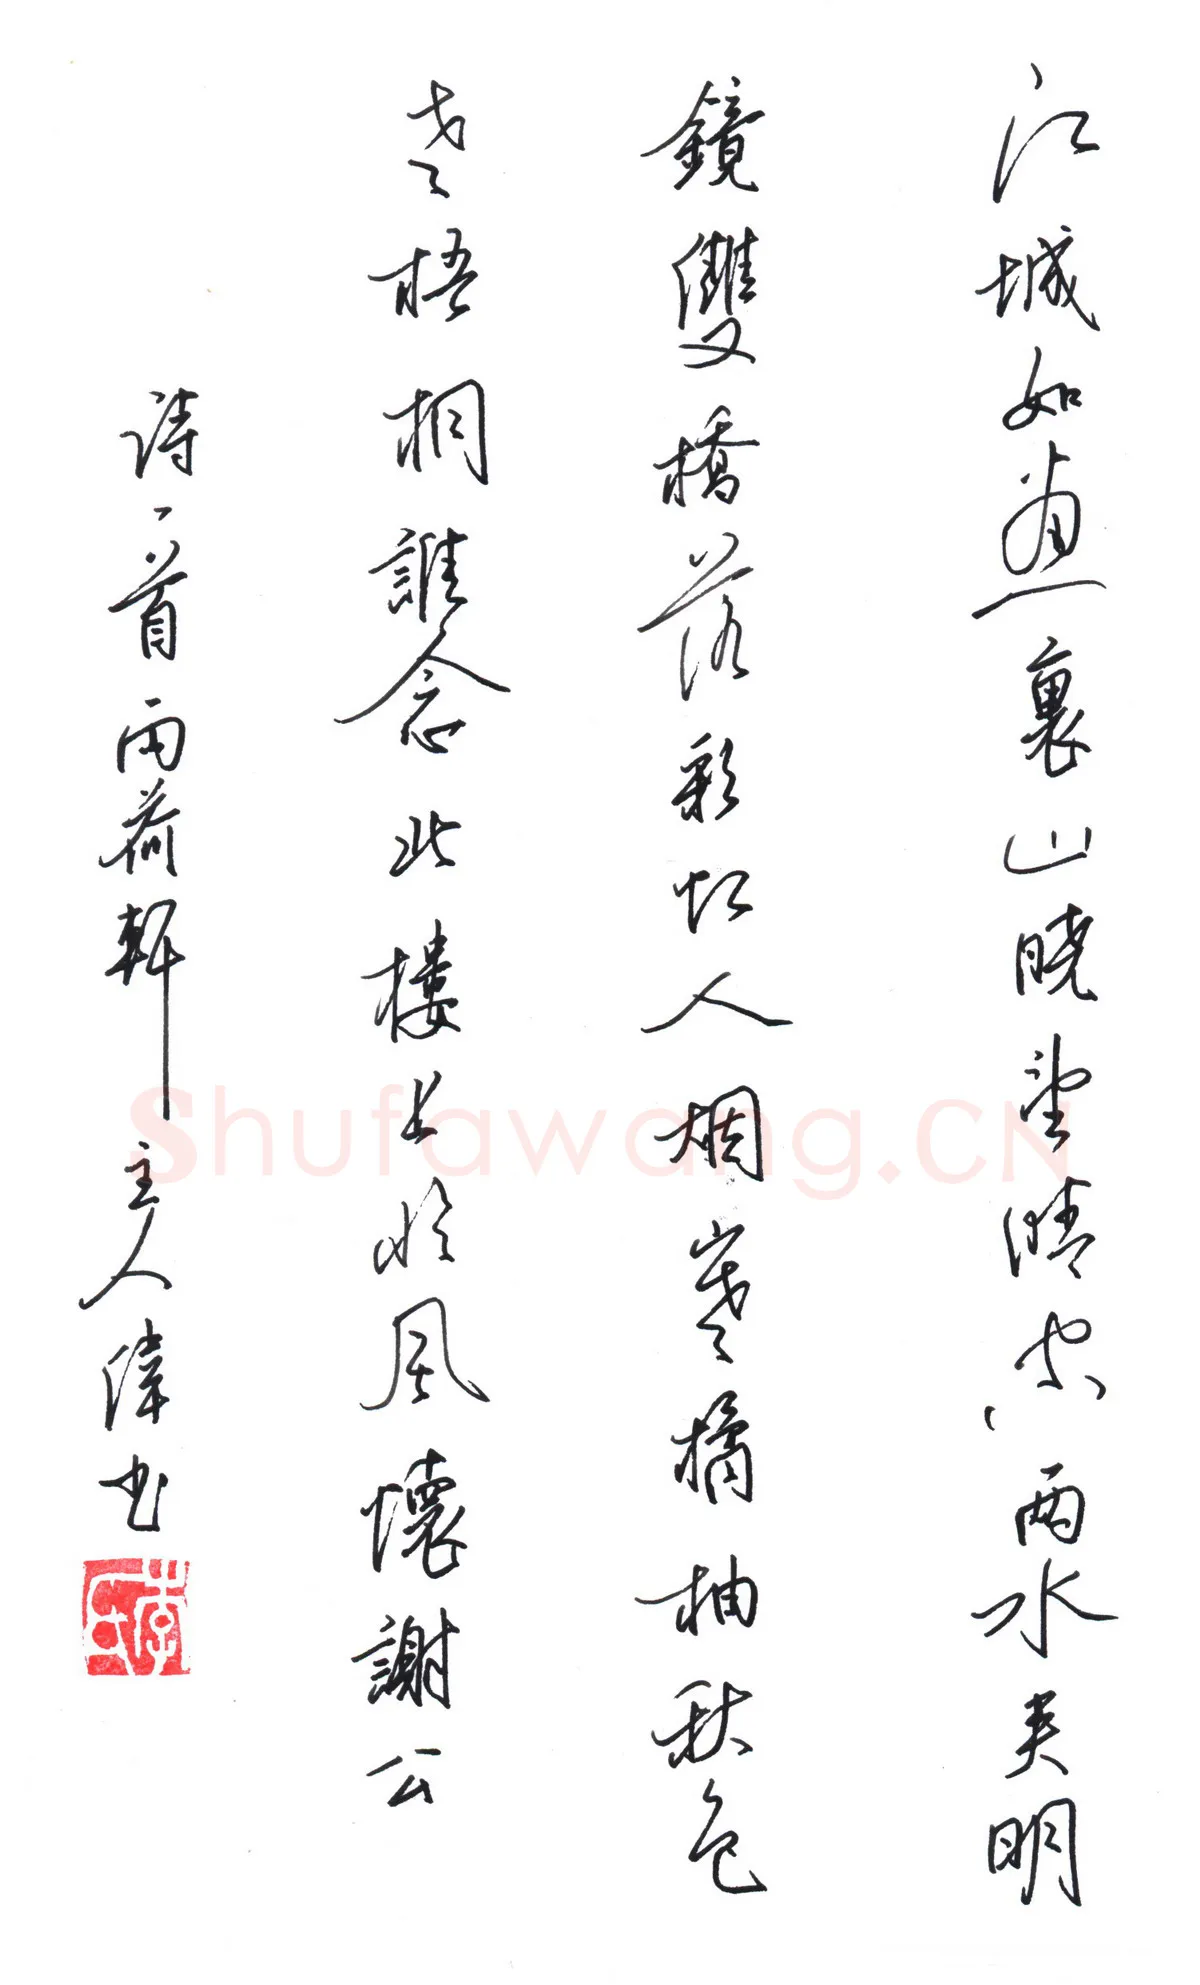 江城如畫裏山晓望晴空两水夹明
鏡雙橋落彩虹人烟寒橘柚秋色
老梧桐誰念北樓上临風懷謝公
詩一首雨荷軒主人偉书
Shufawang.CN